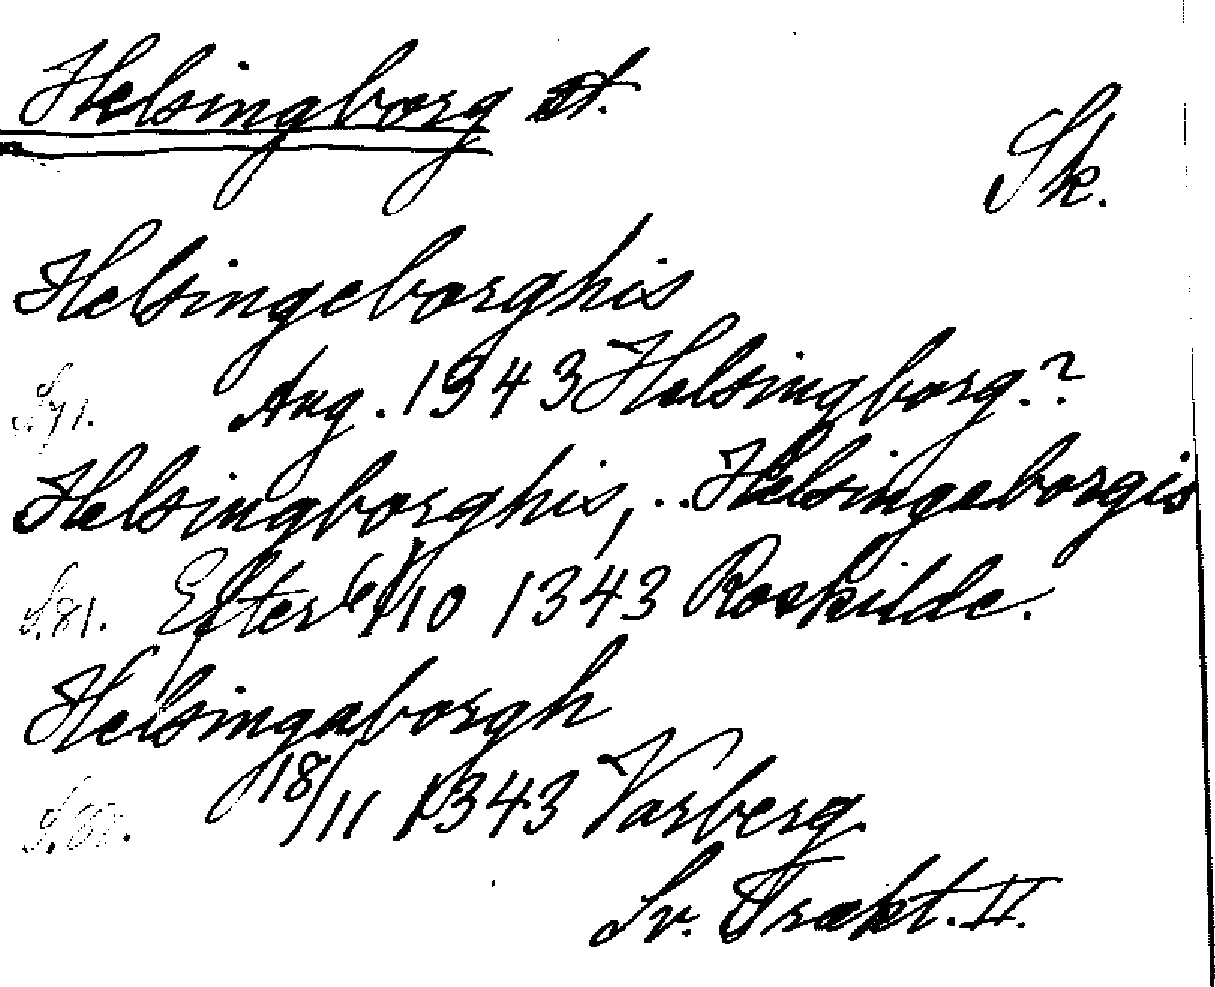 Helsingborg st.
Sk.
Helsingeborghis
S. 71. Aug. 1343 Helsingborg?
Helsingborghis, .. Helsingeborgis
S. 81. Efter 6/10 1343 Roskilde.
Helsingaborgh
18/11 1343 Varberg.
Sv. Trakt. II.